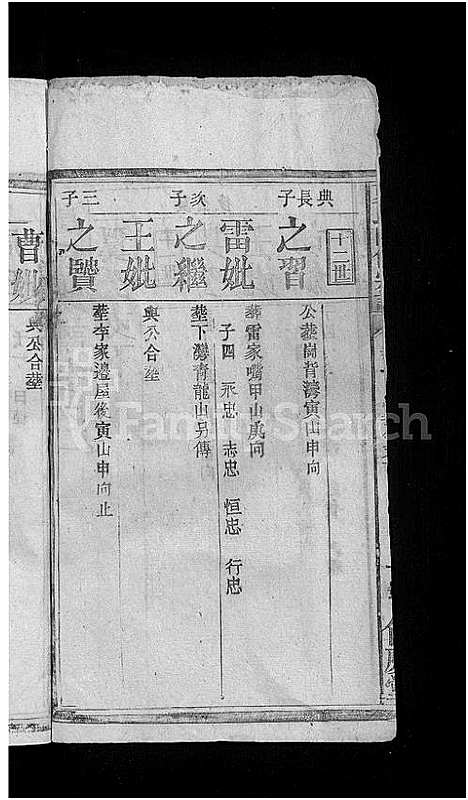 十二世
典長子
之習
公塟崗背灣寅山申向
雷妣
葬雷家嘴甲山庚向
子四 永忠 志忠 恒忠 行忠
次子
之繼
塟下灣青龍山另傳
王妣
與公合塟
三子
之贒
塟李家邉屋後寅山申向止
曹妣
與公合塟
FamilySearch